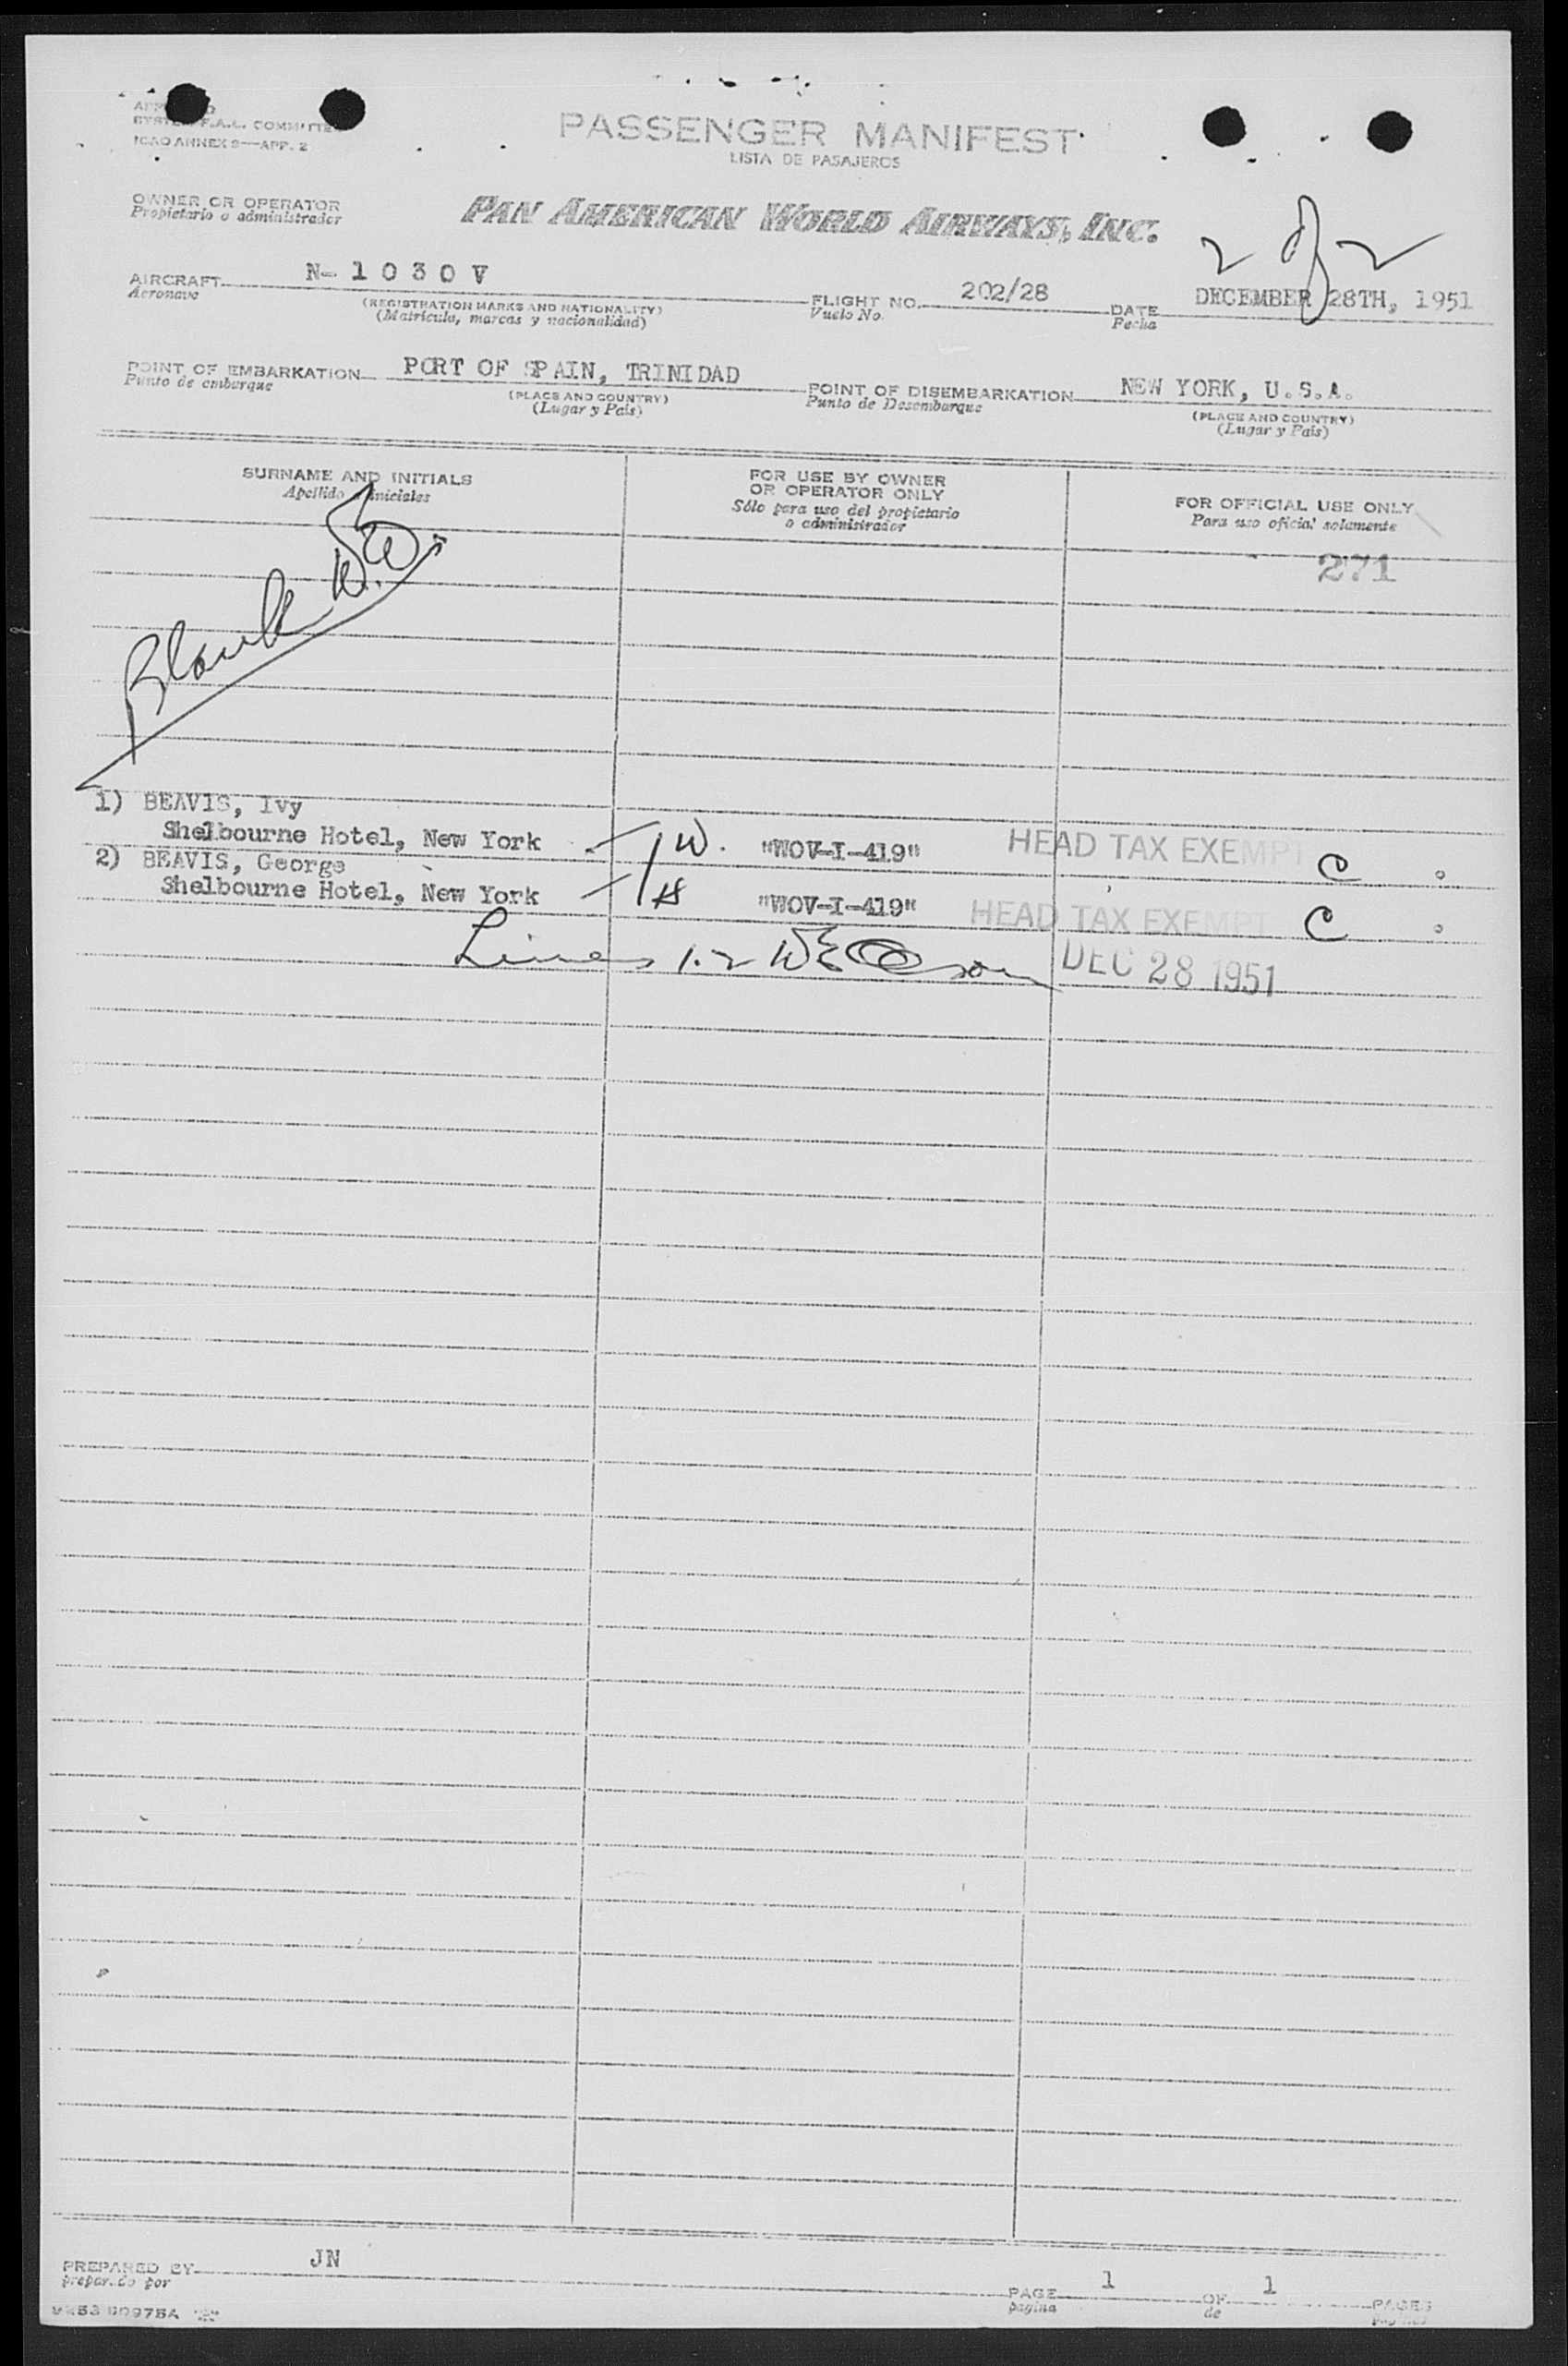 F.A.L. COMMITTEE
ICAO ANNEX 9—APP. 2
PASSENGER MANIFEST
LISTA DE PASAJEROS
OWNER OR OPERATOR
Propietario o administrador
PAN AMERICAN WORLD AIRWAYS, INC.
2 of 2
AIRCRAFT N- 1 0 3 0 V
Aeronave
(REGISTRATION MARKS AND NATIONALITY)
(Matricula, marcas y nacionalidad)
FLIGHT NO. 202/28
Vuelo No.
DATE DECEMBER 28TH, 1951
Fecha
POINT OF EMBARKATION PORT OF SPAIN, TRINIDAD
Punto de embarque
(PLACE AND COUNTRY)
(Lugar y País)
POINT OF DISEMBARKATION NEW YORK, U.S.A.
Punto de Desembarque
(PLACE AND COUNTRY)
(Lugar y País)
SURNAME AND INITIALS
Apellido iniciales
FOR USE BY OWNER
OR OPERATOR ONLY
Sólo para uso del propietario
o administrador
FOR OFFICIAL USE ONLY
Para uso oficial solamente
271
Blank
1) BEAVIS, Ivy
Shelbourne Hotel, New York W. "WOV-I-419" HEAD TAX EXEMPT C
2) BEAVIS, George
Shelbourne Hotel, New York "WOV-I-419" HEAD TAX EXEMPT C
Lines 1-2
DEC 28 1951
PREPARED BY JN
preparado por
PAGE 1 OF 1 PAGES
pagina de